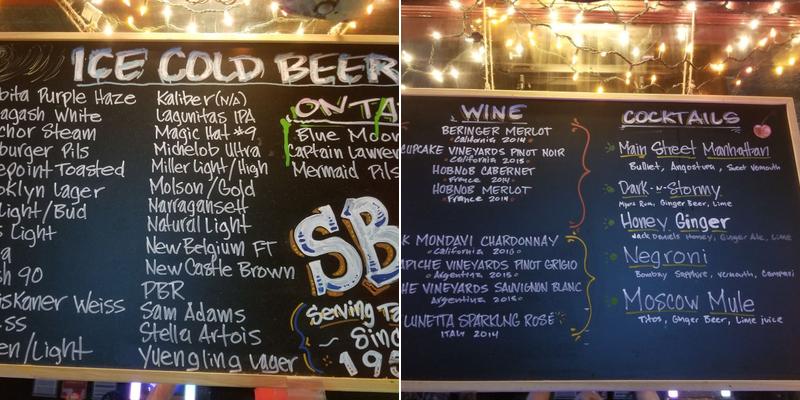 ICE COLD BEER
bita Purple Haze
agash White
chor Steam
burger Pils
epoint Toasted
oklyn Lager
Light/Bud
s Light
a
sh 90
iskaner Weiss
ss
en/Light
Kaliber (N/A)
Lagunitas IPA
Magic Hat #9
Michelob Ultra
Miller Light/High
Molson/Gold
Narragansett
Natural Light
New Belgium FT
New Castle Brown
PBR
Sam Adams
Stella Artois
Yuengling Lager
ON TA
Blue Moon
Captain Lawren
Mermaid Pils
SB
Serving Ta
Sinc
195
WINE
BERINGER MERLOT
California 2014
CUPCAKE VINEYARDS PINOT NOIR
California 2015
HOBNOB CABERNET
France 2014
HOBNOB MERLOT
France 2014
K MONDAVI CHARDONNAY
California 2015
APICHE VINEYARDS PINOT GRIGIO
Argentina 2015
HE VINEYARDS SAUVIGNON BLANC
Argentina 2015
LUNETTA SPARKLING ROSE
ITALY 2014
COCKTAILS
Main Street Manhattan
Bulleit, Angostura, Sweet Vermouth
Dark-n-Stormy
Myers Rum, Ginger Beer, Lime
Honey Ginger
Jack Daniels Honey, Ginger Ale, Lime
Negroni
Bombay Sapphire, Vermouth, Campari
Moscow Mule
Titos, Ginger Beer, Lime juice